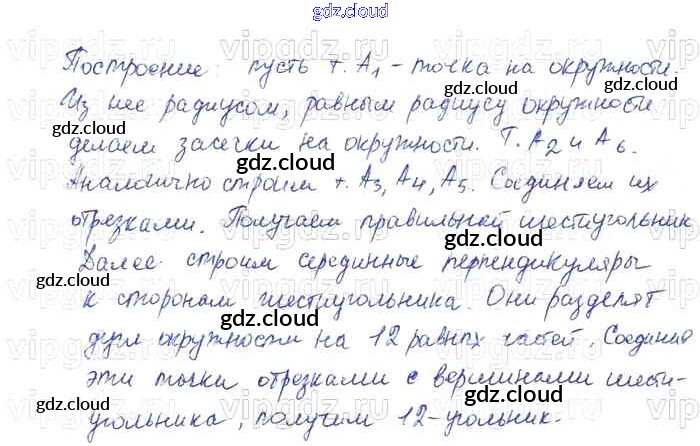 gdz.cloud
Построение: пусть т. A₁ - точка на окружности.
Из нее радиусом, равным радиусу окружности
делаем засечки на окружности. Т. A₂ и A₆.
Аналогично строим т. A₃, A₄, A₅. Соединяем их
отрезками. Получаем правильный шестиугольник
Далее строим серединные перпендикуляры
к сторонам шестиугольника. Они разделят
дуги окружности на 12 равных частей. Соединив
эти точки отрезками с вершинами шести-
угольника, получим 12-угольник.